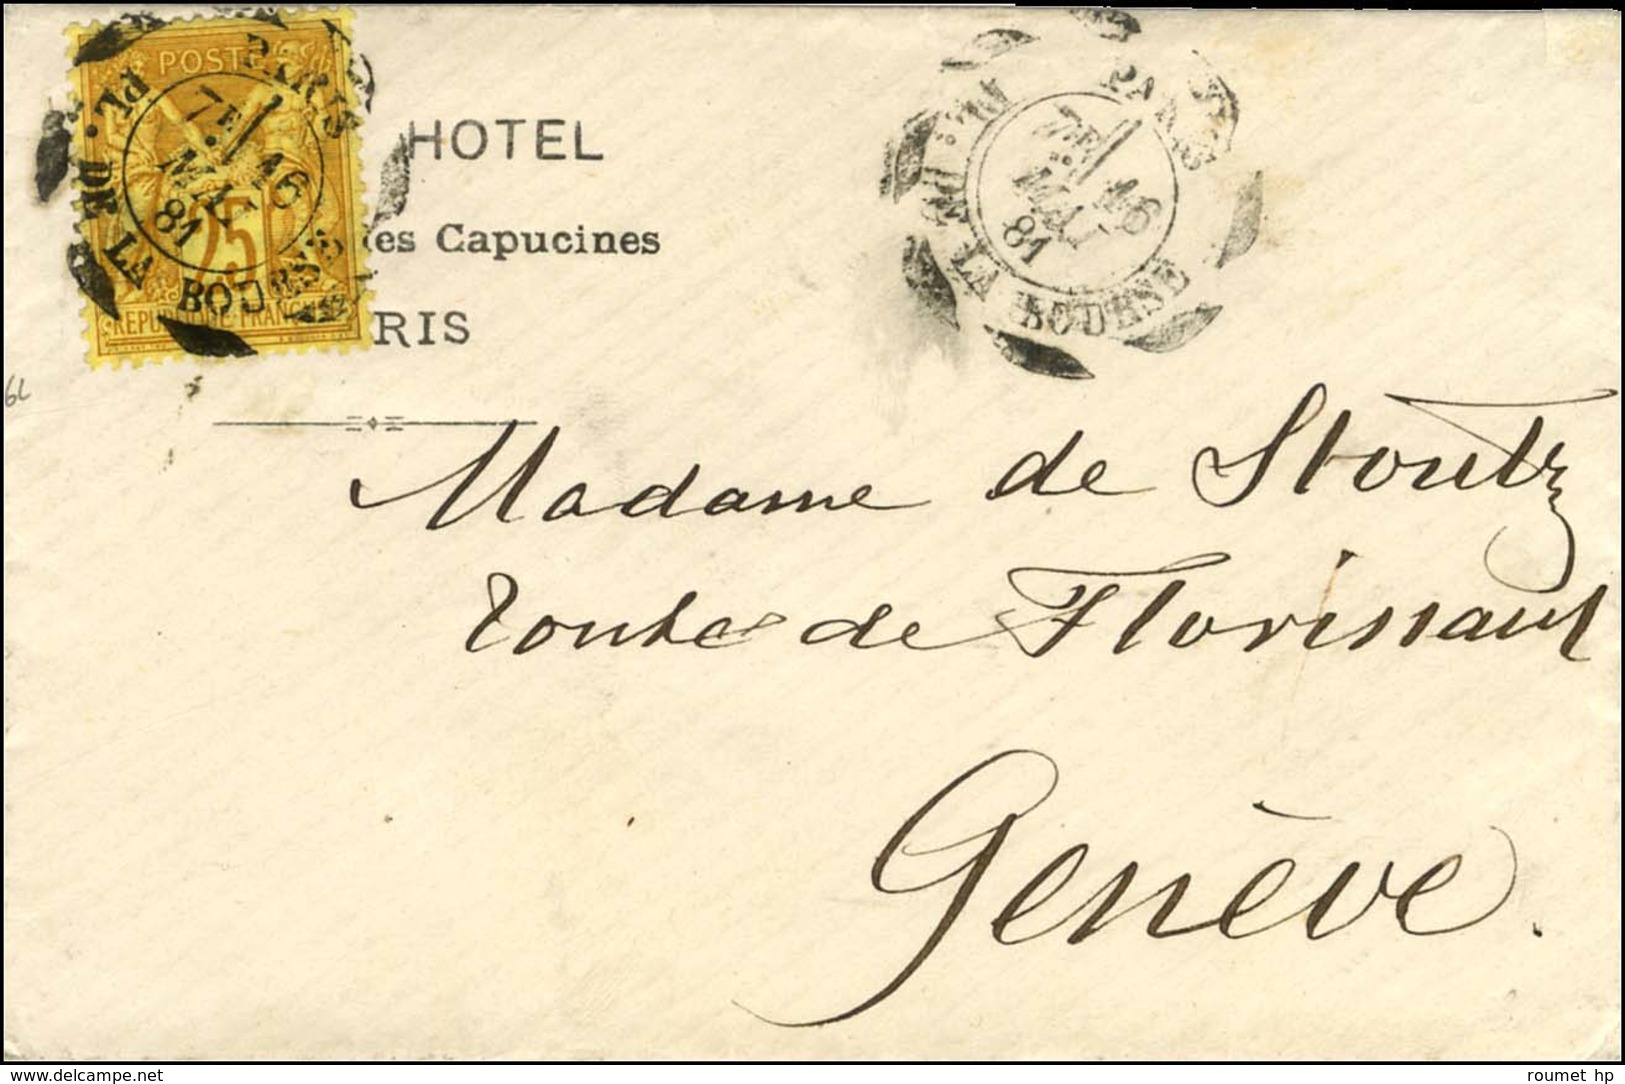 POSTE
PARIS
PL. DE LA BOURSE
7E
16
MAI
81
25
REPUBLIQUE FRANC
HOTEL
es Capucines
RIS
PARIS
PL. DE LA BOURSE
7E
16
MAI
81
6L
Madame de Stoutz
route de Florissant
Genève.
roumet hp
www.delcampe.net